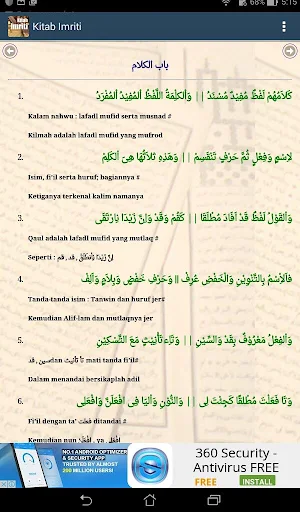 85% 5:15
Kitab Imriti
باب الكلام
1. كَلَامُهُمْ لَفْظٌ مُفِيْدٌ مُسْنَدُ || وَالْكِلْمَةُ اللَّفْظُ الْمُفِيْدُ الْمُفْرَدُ
Kalam nahwu : lafadl mufid serta musnad #
Kilmah adalah lafadl mufid yang mufrod
2. لِاسْمٍ وَفِعْلٍ ثُمَّ حَرْفٍ تَنْقَسِمْ || وَهَذِهِ ثَلَاثُهَا هِيَ الْكَلِمْ
Isim, fi'il serta huruf; bagiannya #
Ketiganya terkenal kalim namanya
3. وَالْقَوْلُ لَفْظٌ قَدْ أَفَادَ مُطْلَقَا || كَقُمْ وَقَدْ وَإِنَّ زَيْدًا بِارْتَقَى
Qaul adalah lafadl mufid yang mutlaq #
4. فَالْاِسْمُ بِالتَّنْوِيْنِ وَالْخَفْضِ عُرِفْ || وَحَرْفِ خَفْضٍ وَبِلَامٍ وَأَلِفْ
Tanda-tanda isim : Tanwin dan huruf jer#
Kemudian Alif-lam dan mutlaqnya jer
5. وَالْفِعْلُ مَعْرُوْفٌ بِقَدْ وَالسِّيْنِ || وَتَاءِ تَأْنِيْثٍ مَعَ التَّسْكِيْنِ
mati tanda fi'il#
Dalam menandai bersikaplah adil
6. وَتَا فَعَلْتَ مُطْلَقًا كَجِئْتَ لِى || وَالنُّوْنِ وَالْيَا فِى افْعَلَنَّ وَافْعَلِى
Fi'il dengan ta' فعلت ditandai #
NO.1 ANDROID OPTIMIZER
& SECURITY APP
TRUSTED BY ALMOST
200 MILLION USERS!
360 Security -
Antivirus FREE
FREE INSTALL